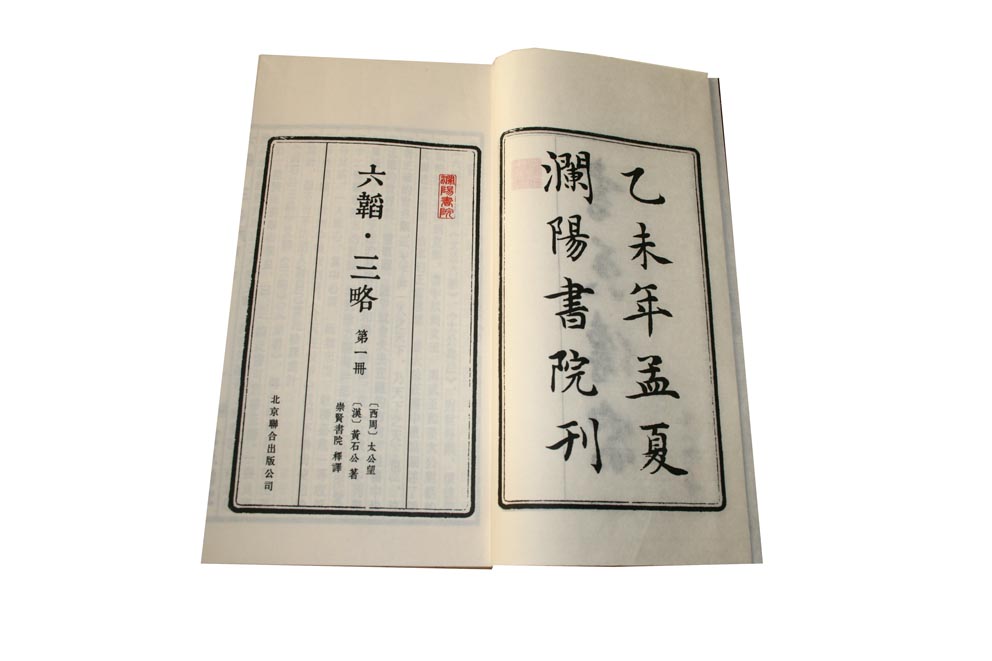 乙未年孟夏
瀾陽書院刊
瀾陽書院
六韜·三略 第一冊
〔西周〕太公望
〔漢〕黃石公 著
崇賢書院 釋譯
北京聯合出版公司